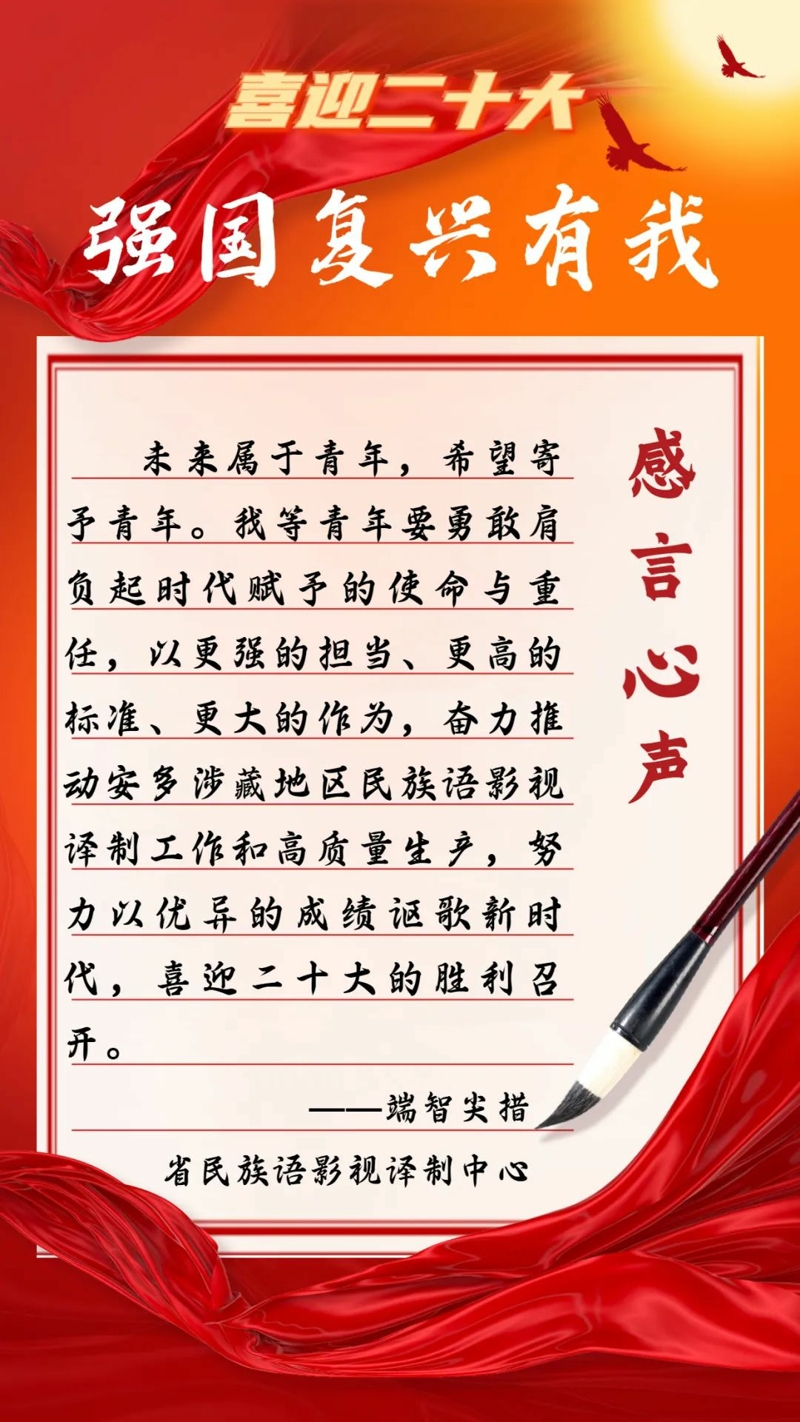 喜迎二十大
强国复兴有我
感言心声
未来属于青年，希望寄
予青年。我等青年要勇敢肩
负起时代赋予的使命与重
任，以更强的担当、更高的
标准、更大的作为，奋力推
动安多涉藏地区民族语影视
译制工作和高质量生产，努
力以优异的成绩讴歌新时
代，喜迎二十大的胜利召
开。
——端智尖措
省民族语影视译制中心